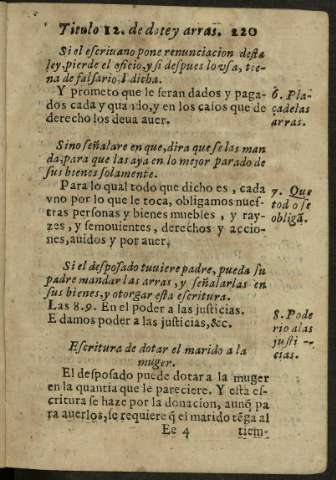 Titulo 12. de dote y arras. 220
Si el escriuano pone renunciacion desta
ley, pierde el oficio, y si despues lo vsa, tie-
na de falsario. l dicha.
Y prometo que le seran dados y paga-
dos cada y quando, y en los casos que de
derecho los deua auer.
6. Pla-
ça de las
arras.
Sino señalare en que, dira que se las man
da, para que las aya en lo mejor parado de
sus bienes solamente.
Para lo qual todo que dicho es, cada
vno por lo que le toca, obligamos nues-
tras personas y bienes muebles, y ray-
zes, y semouientes, derechos y accio-
nes, auidos y por auer.
7. Que
todo se
obligã.
Si el desposado tuuiere padre, pueda su
padre mandar las arras, y señalarlas en
sus bienes, y otorgar esta escritura.
Las 8.9. En el poder a las justicias.
E damos poder a las justicias, &c.
8. Pode
rio a las
justi --
cias.
Escritura de dotar el marido a la
muger.
El desposado puede dotar a la muger
en la quantia que le pareciere. Y esta es-
critura se haze por la donacion, aunq̃ pa
ra auerlos, se requiere q̃ el marido tẽga al
Ee 4 tiem-